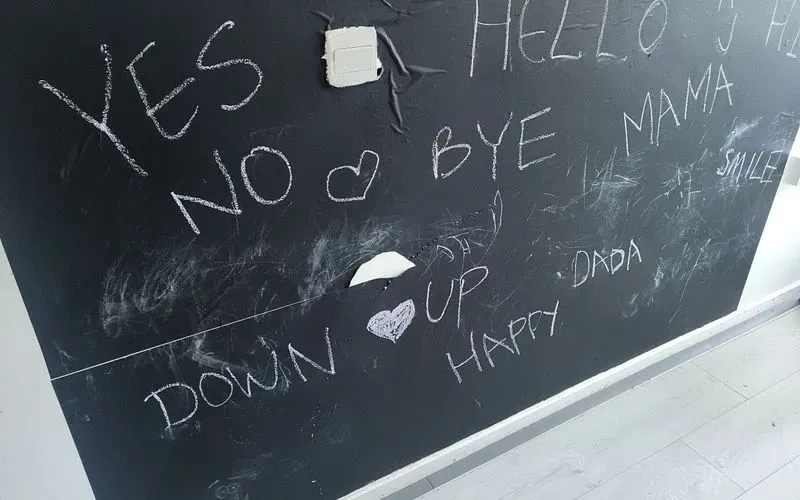 HELLO
YES
NO BYE MAMA
SMILE
DADA
UP
DOWN
HAPPY